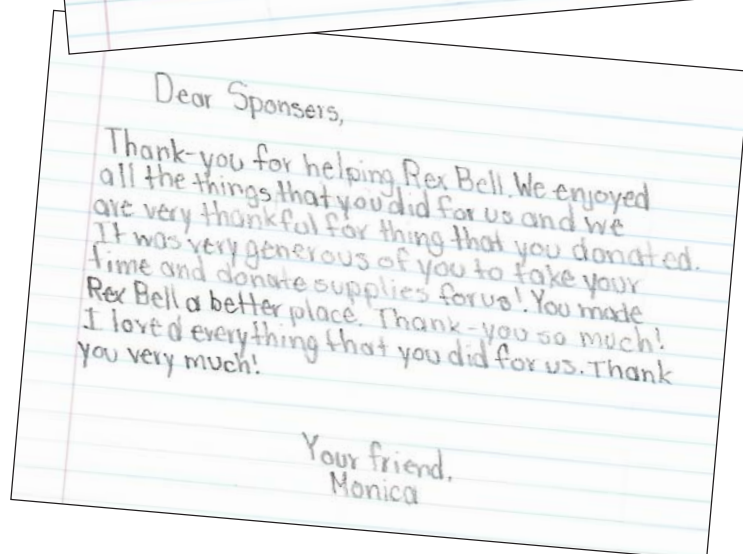 Dear Sponsers,
Thank-you for helping Rex Bell. We enjoyed
all the things that you did for us and we
are very thankful for thing that you donated.
It was very generous of you to take your
time and donate supplies for us! You made
Rex Bell a better place. Thank-you so much!
I loved everything that you did for us. Thank
you very much!
Your friend,
Monica